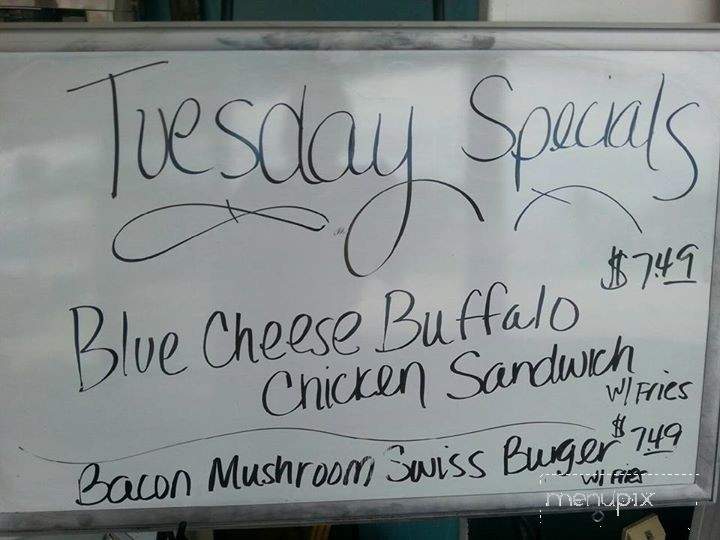 Tuesday Specials
$7.49
Blue Cheese Buffalo
Chicken Sandwich
w/ Fries
$7.49
Bacon Mushroom Swiss Burger
w/ Fries
menupix